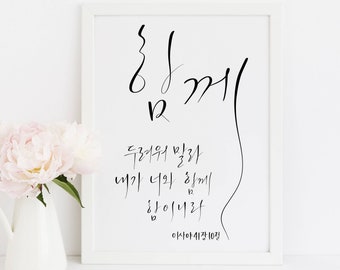 함께
두려워 말라
내가 너와 함께
함이니라
이사야 41장 10절